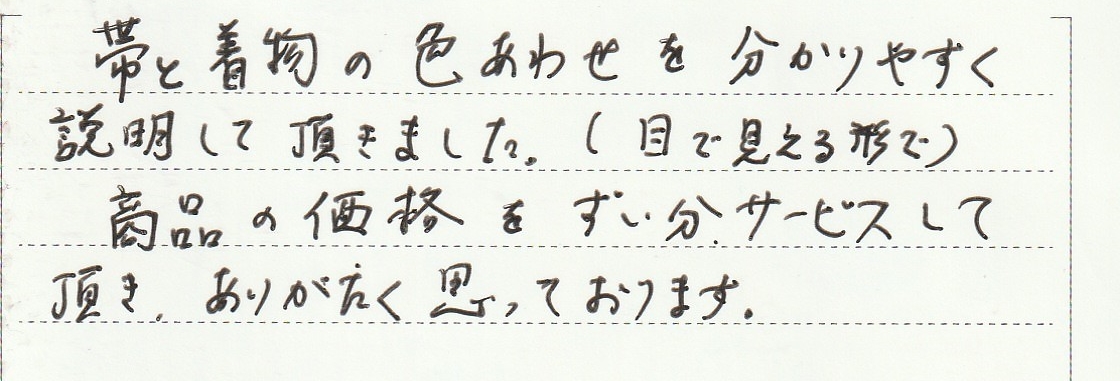 帯と着物の色あわせを分かりやすく
説明して頂きました。(目で見える形で)
商品の価格をずい分サービスして
頂き、ありがたく思っております。